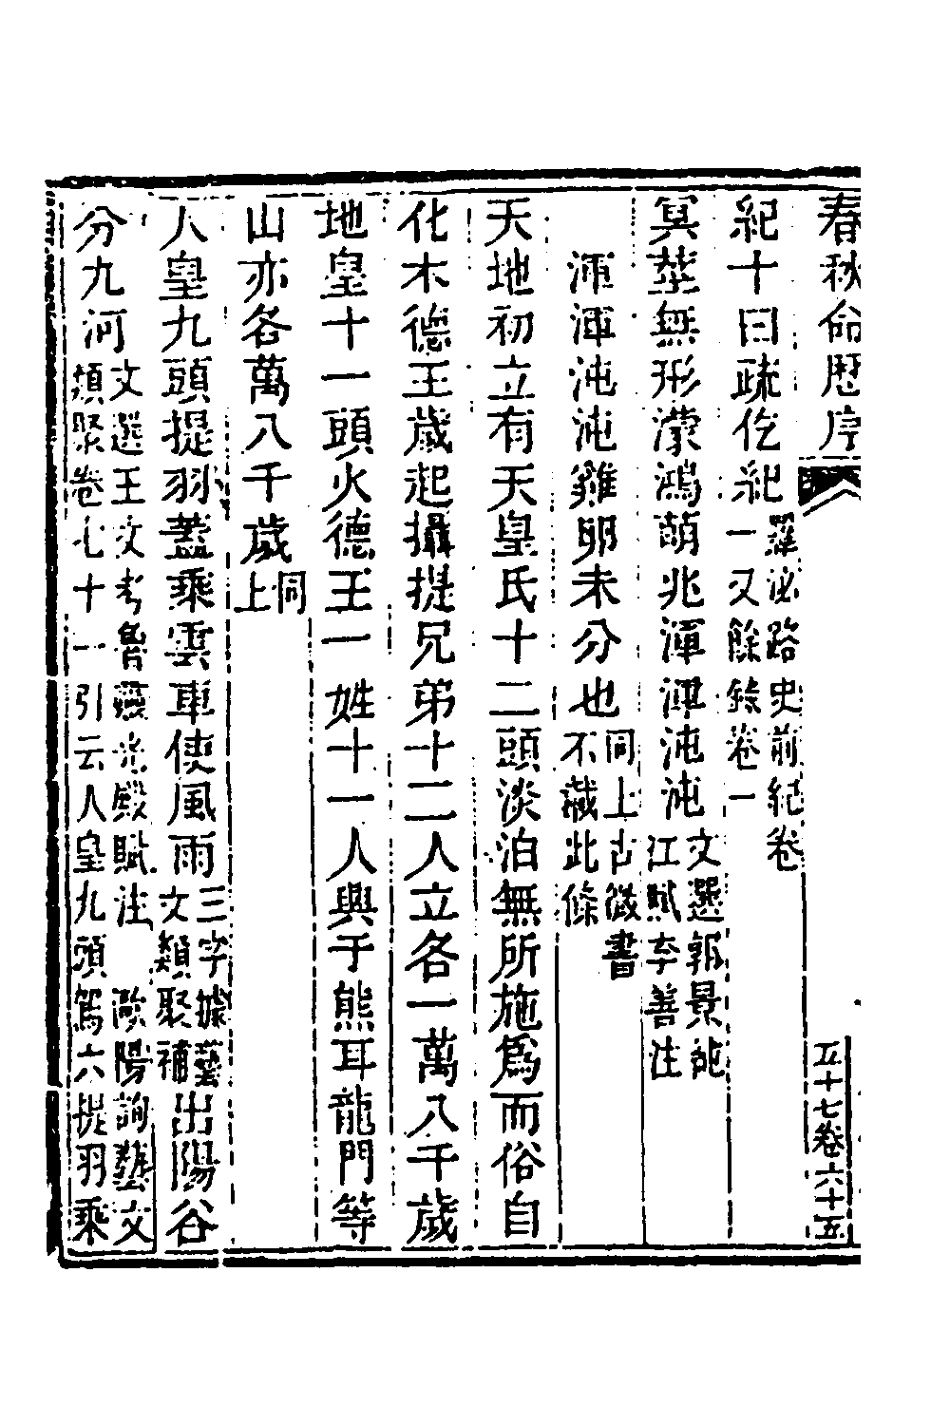 春秋命歷序
五十七卷六十五
紀十曰疏仡紀羅泌路史前紀卷一又餘錄卷一
冥莖無形濛鴻萌兆渾渾沌沌文選郭景純江賦李善注
渾渾沌沌雞卵未分也同上古微書不藏此條
天地初立有天皇氏十二頭淡泊無所施爲而俗自
化木德王歲起攝提兄弟十二人立各一萬八千歲
地皇十一頭火德王一姓十一人興于熊耳龍門等
山亦各萬八千歲同上
人皇九頭提羽蓋乘雲車使風雨三字據藝文類聚補出陽谷
分九河文選王文考魯靈光殿賦注 歐陽詢藝文類聚卷七十一引云人皇九頭駕六提羽乘